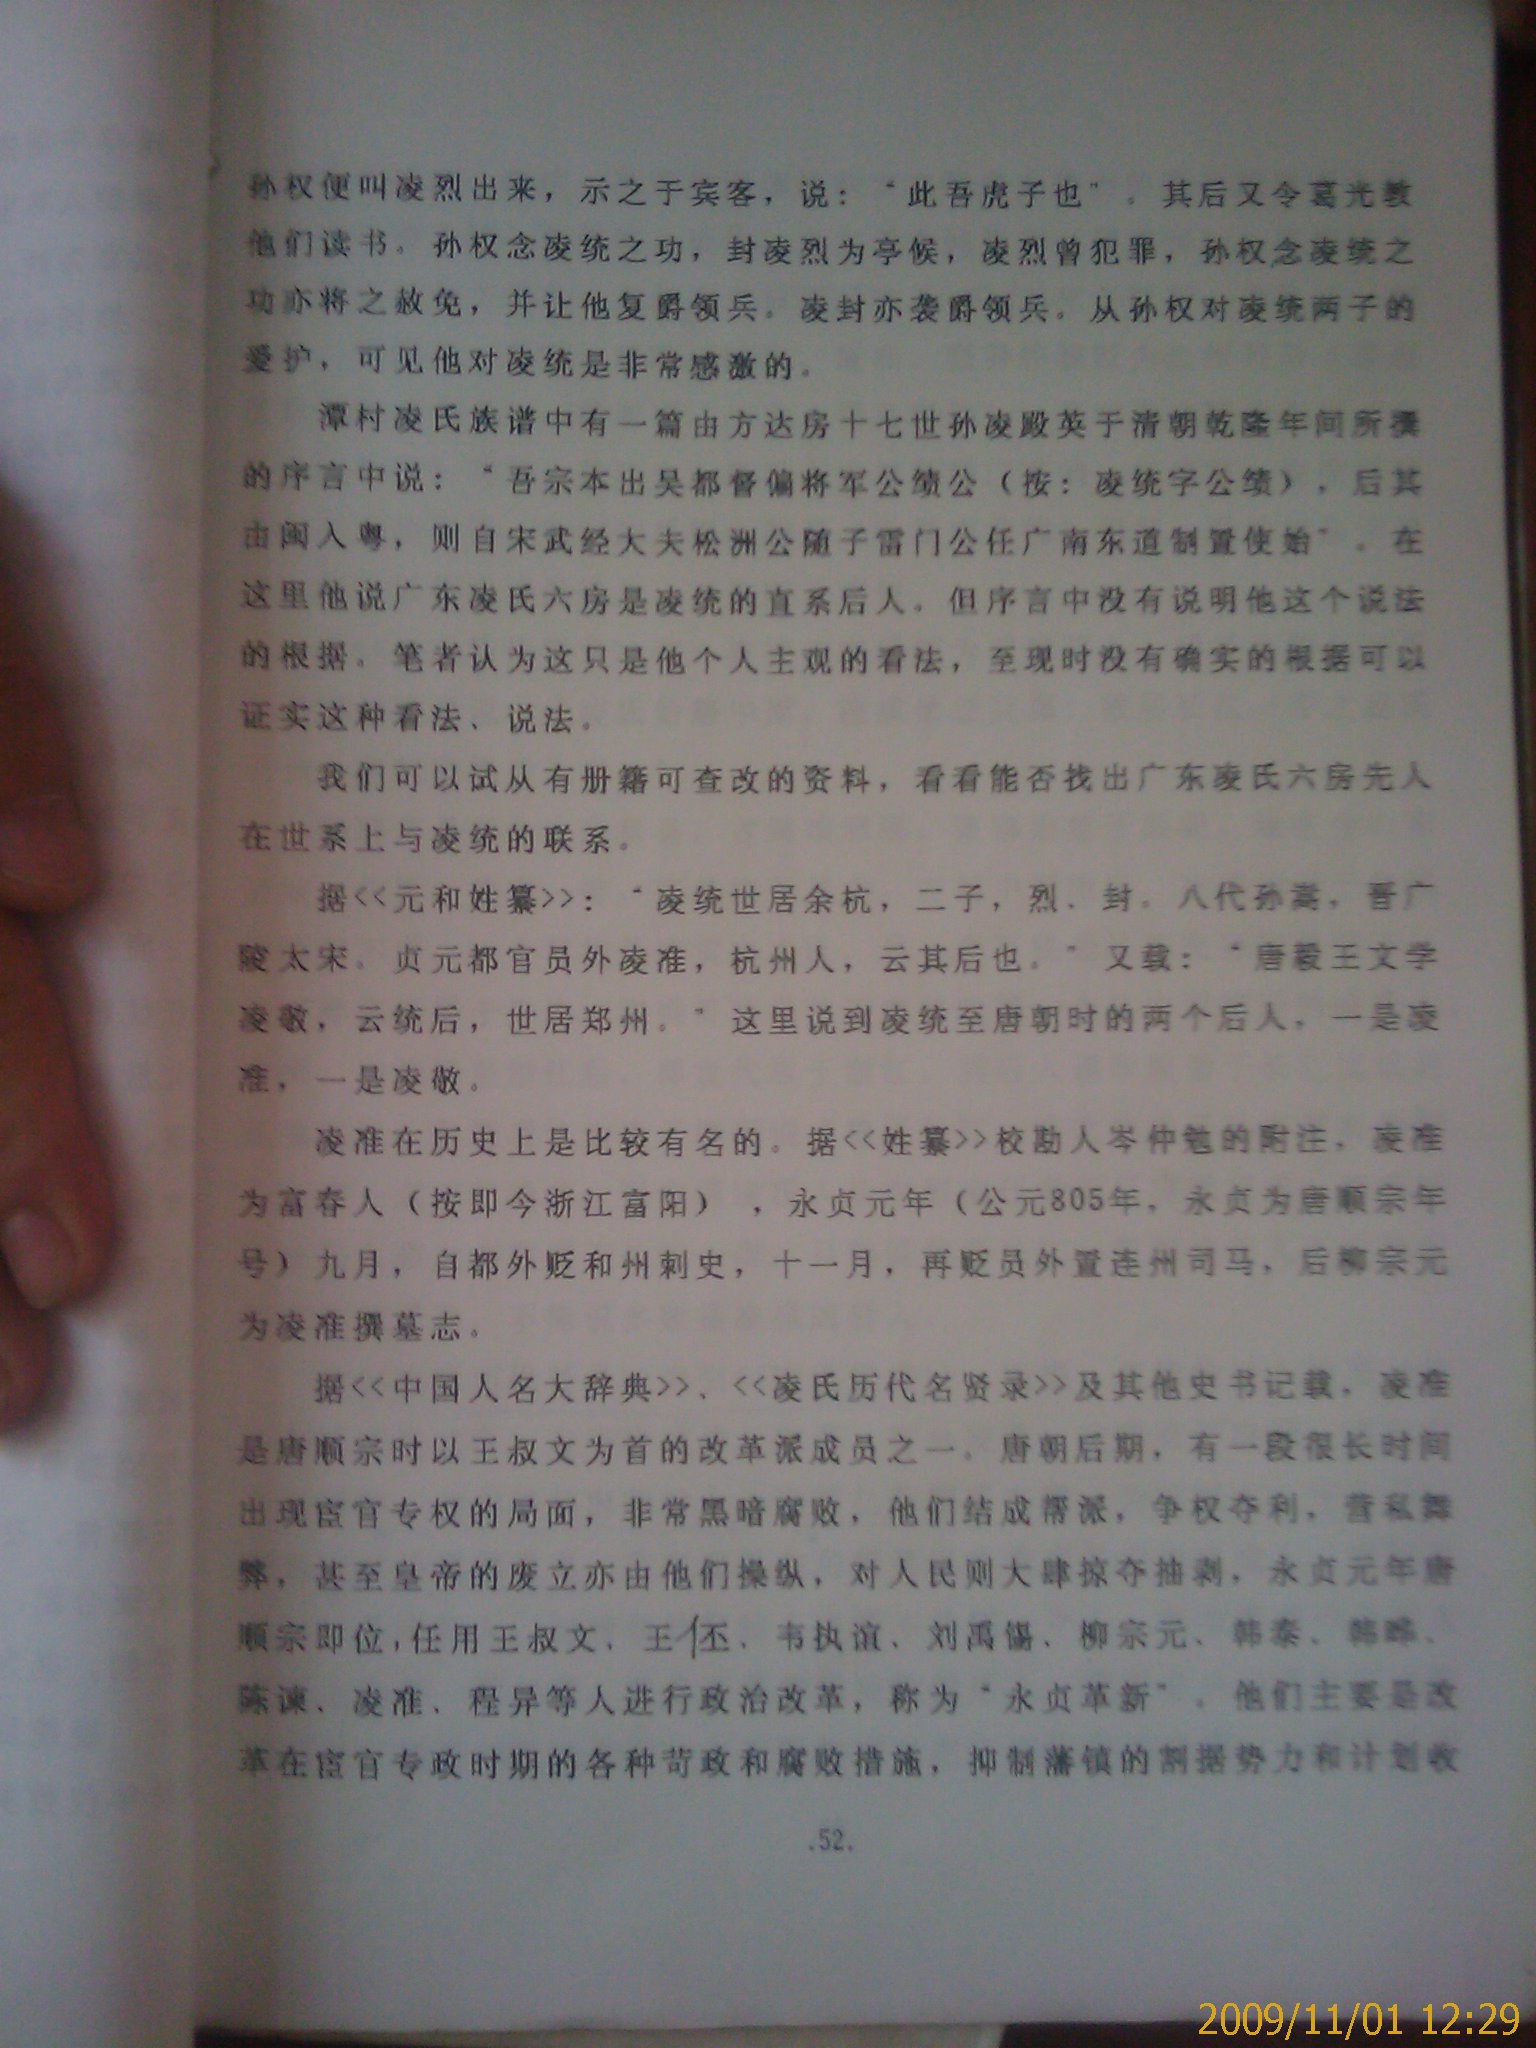 孙权便叫凌烈出来，示之于宾客，说：“此吾虎子也”。其后又令葛光教
他们读书。孙权念凌统之功，封凌烈为亭候，凌烈曾犯罪，孙权念凌统之
功亦将之赦免，并让他复爵领兵。凌封亦袭爵领兵。从孙权对凌统两子的
爱护，可见他对凌统是非常感激的。
潭村凌氏族谱中有一篇由方达房十七世孙凌殿英于清朝乾隆年间所撰
的序言中说：“吾宗本出吴都督偏将军公绩公（按：凌统字公绩），后其
由闽入粤，则自宋武经大夫松洲公随子雷门公任广南东道制置使始”。在
这里他说广东凌氏六房是凌统的直系后人。但序言中没有说明他这个说法
的根据。笔者认为这只是他个人主观的看法，至现时没有确实的根据可以
证实这种看法、说法。
我们可以试从有册籍可查改的资料，看看能否找出广东凌氏六房先人
在世系上与凌统的联系。
据<<元和姓纂>>：“凌统世居余杭，二子，烈、封。八代孙嵩，晋广
陵太宋。贞元都官员外凌准，杭州人，云其后也。”又载：“唐毅王文学
凌敬，云统后，世居郑州。”这里说到凌统至唐朝时的两个后人，一是凌
准，一是凌敬。
凌准在历史上是比较有名的。据<<姓纂>>校勘人岑仲勉的附注，凌准
为富春人（按即今浙江富阳），永贞元年（公元805年，永贞为唐顺宗年
号）九月，自都外贬和州刺史，十一月，再贬员外置连州司马，后柳宗元
为凌准撰墓志。
据<<中国人名大辞典>>、<<凌氏历代名贤录>>及其他史书记载，凌准
是唐顺宗时以王叔文为首的改革派成员之一。唐朝后期，有一段很长时间
出现宦官专权的局面，非常黑暗腐败，他们结成帮派，争权夺利，营私舞
弊，甚至皇帝的废立亦由他们操纵，对人民则大肆掠夺抽剥，永贞元年唐
顺宗即位，任用王叔文、王伾、韦执谊、刘禹锡、柳宗元、韩泰、韩晔、
陈谏、凌准、程异等人进行政治改革，称为“永贞革新”。他们主要是改
革在宦官专政时期的各种苛政和腐败措施，抑制藩镇的割据势力和计划收
.52.
2009/11/01 12:29